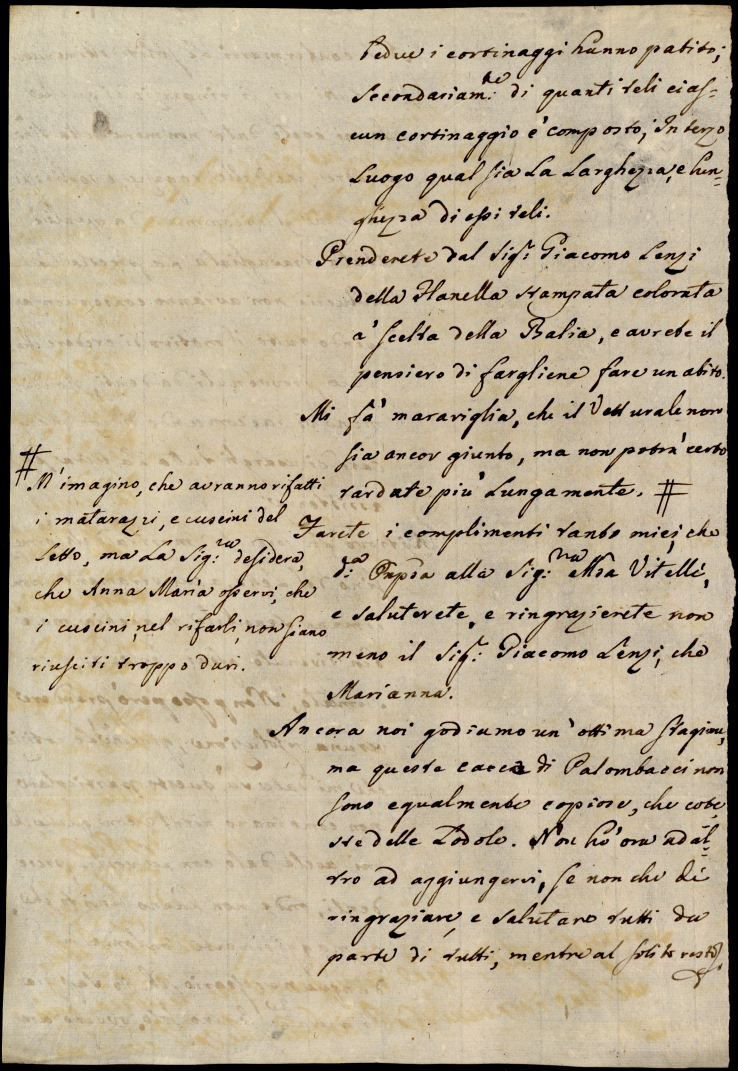 tedue i cortinaggi hanno patito;
Secondariam:te di quanti teli cias-
cun cortinaggio è composto; In terzo
Luogo qual sia La Larghezza, e lun-
ghezza di essi teli.
Prenderete dal Sig:r Giacomo Lenzi
della flanella stampata colorata
a' scelta della Balia, e avrete il
pensiero di fargliene fare un abito.
Mi fà maraviglia, che il Vetturale non
sia ancor giunto, ma non potrà certo
tardare più Lungamente. #
Farete i complimenti tanto miei, che
d:a alla Sig:ra Vitelli,
e saluterete, e ringrazierete non
meno il Sig:r Giacomo Lenzi, che
Marianna.
Ancora noi godiamo un' ottima stagione,
ma queste cacce di Palombacci non
sono egualmente copiose, che cote-
ste delle Lodole. Non hò ora ad al-
tro ad aggiungervi, se non che di
ringraziare, e salutare tutti da
parte di tutti, mentre al solito resto
#
M'imagino, che avranno rifatti
i matarazzi, e cuscini del
Letto, ma La Sig:ra desidera,
che Anna Maria osservi, che
i cuscini, nel rifarli, non siano
riusciti troppo duri.